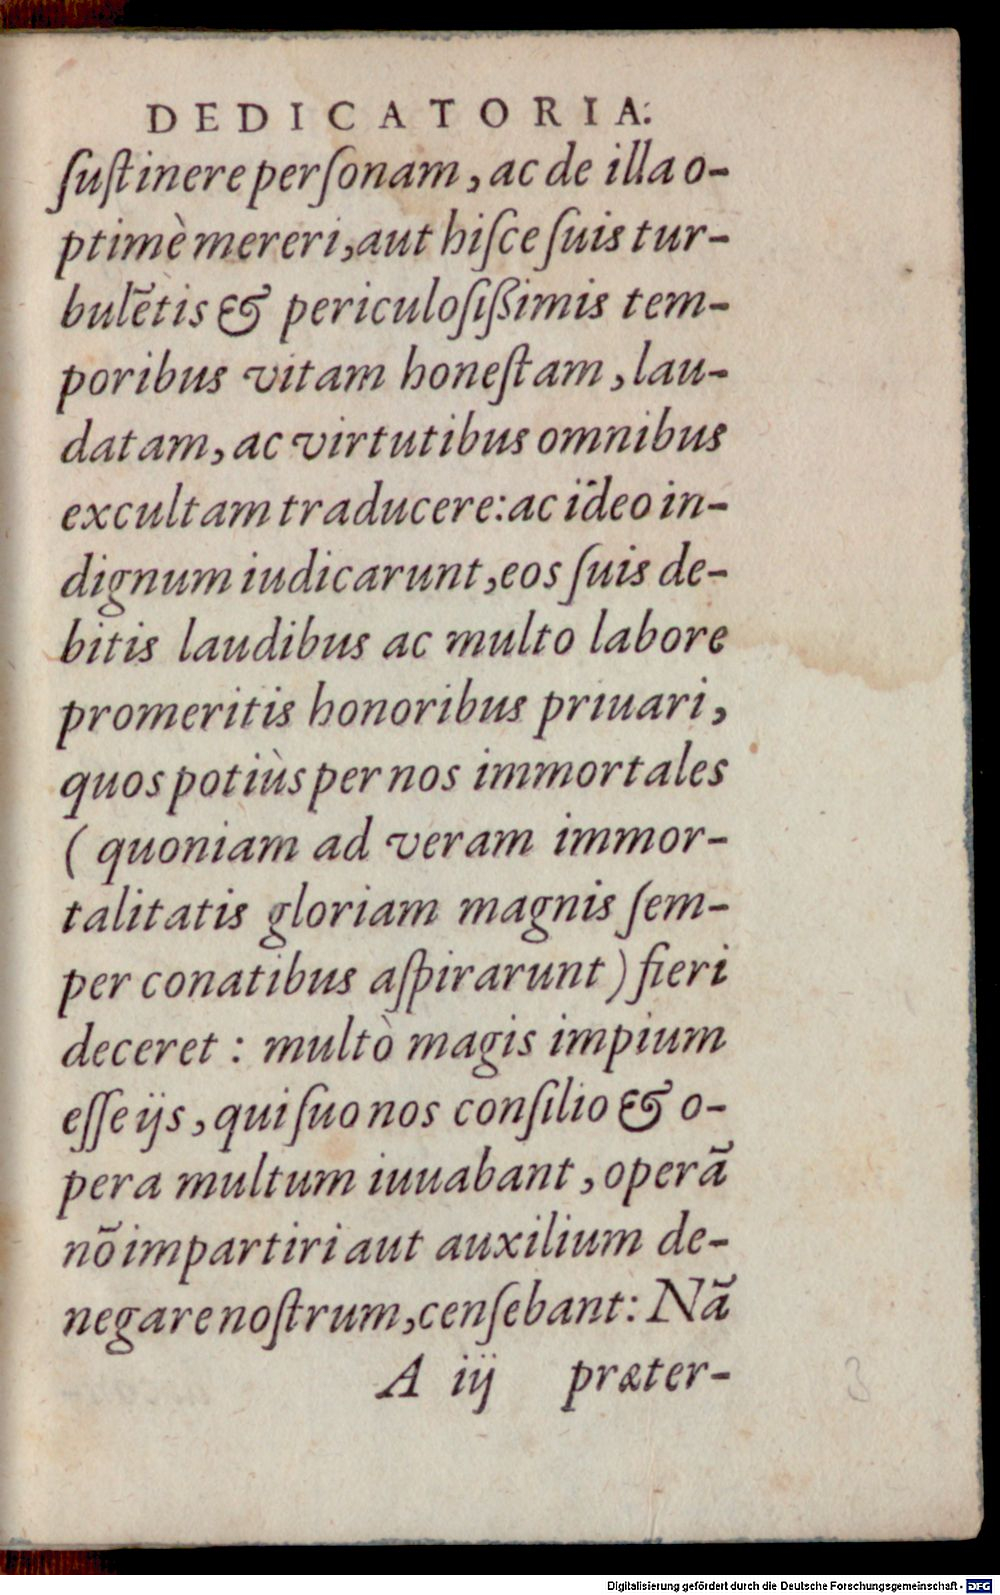 DEDICATORIA.
ſuſtinere perſonam, ac de illa o-
ptimè mereri, aut hiſce ſuis tur-
bulētis & periculoſißimis tem-
poribus vitam honeſtam, lau-
datam, ac virtutibus omnibus
excultam traducere: ac ideo in-
dignum iudicarunt, eos ſuis de-
bitis laudibus ac multo labore
promeritis honoribus priuari,
quos potiùs per nos immortales
( quoniam ad veram immor-
talitatis gloriam magnis ſem-
per conatibus aſpirarunt) fieri
deceret : multò magis impium
eſſe ijs, qui ſuo nos conſilio & o-
pera multum iuuabant, operā
nō impartiri aut auxilium de-
negare noſtrum, cenſebant: Nā
A iij præter-
3
Digitalisierung gefördert durch die Deutsche Forschungsgemeinschaft - DFG